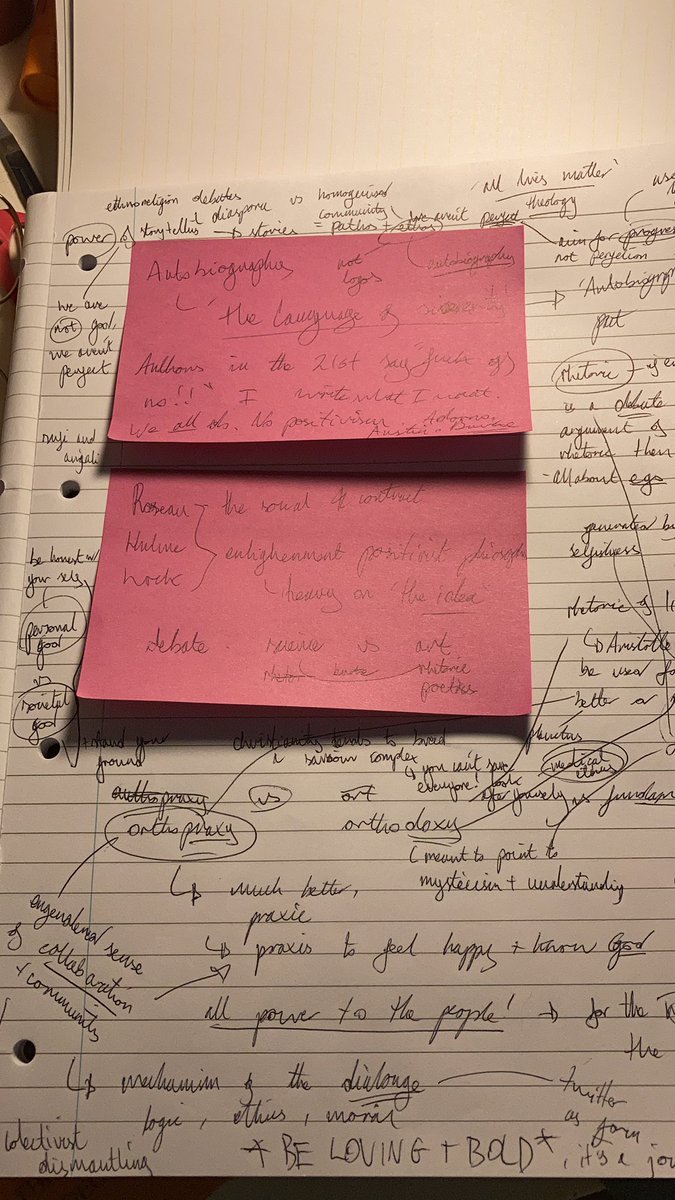 ethnoreligion debates
diaspora vs homogenised community
'all lives matter'
theology
power of storytellers → stories = pathos + ethos
we aren't perfect
not logos
autobiography
aim for progress
not perfection
we are
not good,
we aren't
perfect
Autobiographies
↳ 'the language of sincerity'
Authors in the 21st say "fuck off
no!!" I write what I want.
We all do. No positivism Adorno,
Austin, Burke
→ 'Autobiogra
put
rhetoric
is a debate
argument of
rhetoric then
- all about ego
generated
selfishness
rhetoric of
↳ Aristotle
be used fo
better or
Roseau
Hulme
Lock
the soial & contract
enlighenment positivit philosoph
↳ heavy on "the idea"
debate. science vs art
rhetoric
poetics
be honest w/
your self
personal
good
vs
societal
good
+ stand your
ground
christianity tends to breed
a saviour complex
↳ you can't save
everyone!
medical
ethics
orthopraxy
vs
art
orthopraxy
orthodoxy
(meant to point to
mysticism + understanding
↳ much better,
praxic
↳ praxis to feel happy + know God
engendered sense
of collaboration
+ community
all power to the people! → for the
the
↳ mechanism of the dialouge
twitter
as form
logic, ethics, moral
colectivist
dismantling
* BE LOVING + BOLD*, it's a jou